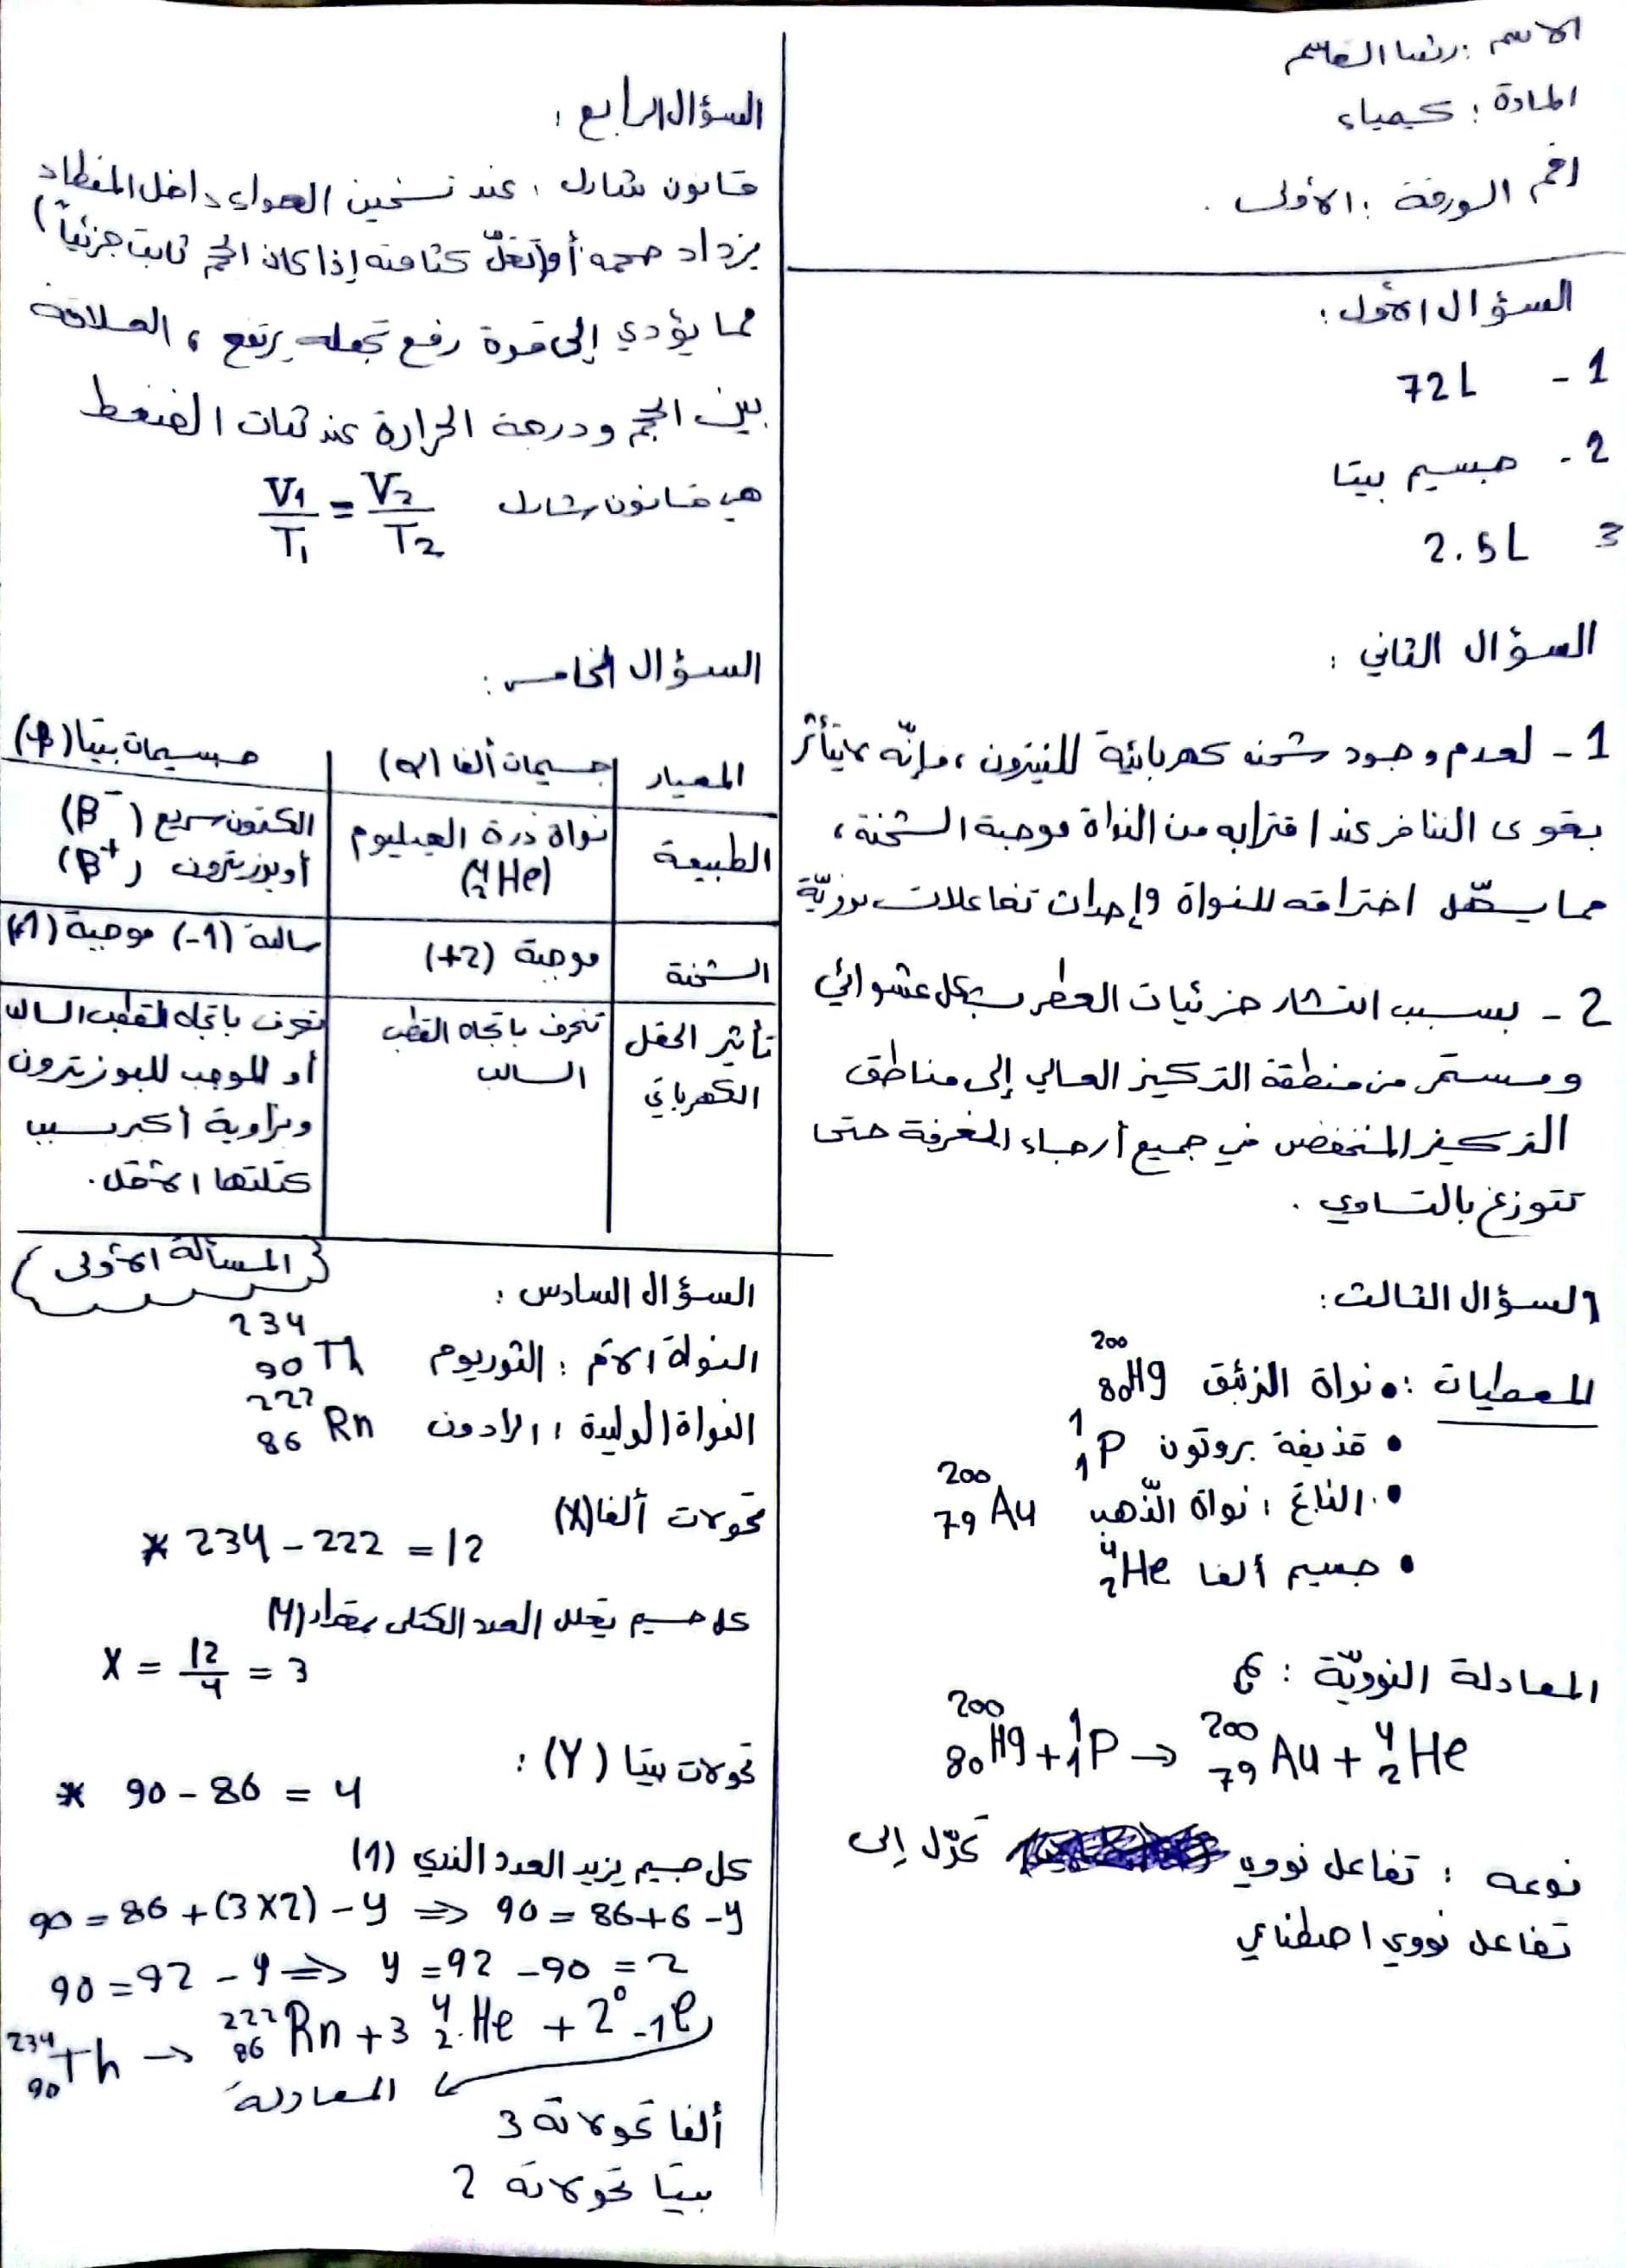 الاسم : رشا القاسم
المادة : كيمياء
رقم الورقة : الأولى .
السؤال الأول :
1 - 72L
2 - جسيم بيتا
3 2.5L
السؤال الثاني :
1 - لعدم وجود شحنه كهربائية للنيترون ، فإنّه لا يتأثر
بقوى التنافر عند اقترابه من النواة موجبة الشحنة ،
مما يسهّل اختراقه للنواة وإحداث تفاعلات نوويّة
2 - بسبب انتشار جزئيات العطر بشكل عشوائي
ومستمر من منطقة التركيز العالي إلى مناطق
التركيز المنخفض في جميع أرجاء الغرفة حتى
تتوزع بالتساوي .
السؤال الثالث :
المعطيات : • نواة الزئبق ²⁰⁰₈₀Hg
• قذيفة بروتون ¹₁P
• الناتج : نواة الذّهب ²⁰⁰₇₉Au
• جسيم ألفا ⁴₂He
المعادلة النوويّة :
²⁰⁰₈₀Hg + ¹₁P → ²⁰⁰₇₉Au + ⁴₂He
نوعه : تفاعل نووي تحوّل إلى
تفاعل نووي اصطناعي
السؤال الرابع :
قانون شارل : عند تسخين الهواء داخل المنطاد
يزداد حجمه أو (تقلّ كثافته إذا كان الحجم ثابت جزئياً)
مما يؤدي إلى قوة رفع تجعله يرتفع ، العلاقة
بين الحجم ودرجة الحرارة عند ثبات الضغط
هي قانون شارل V₁/T₁ = V₂/T₂
السؤال الخامس :
المعيار جسيمات ألفا (α) جسيمات بيتا (β)
الطبيعة نواة ذرة الهيليوم (⁴₂He) الكترون سريع (β⁻) أو بوزيترون (β⁺)
الشحنة موجبة (+2) سالبة (-1) موجبة (+1)
تأثير الحقل الكهربائي تنحرف باتجاه القطب السالب تنحرف باتجاه القطب السالب أو للموجب للبوزيترون وبزاوية أكبر بسبب كتلتها الأقل .
السؤال السادس : (المسألة الأولى)
النواة الأم : الثوريوم ²³⁴₉₀Th
النواة الوليدة : الرادون ²²²₈₆Rn
تحولات ألفا (X)
* 234 - 222 = 12
كل جسيم يقلل العدد الكتلي بمقدار (4)
X = 12/4 = 3
تحولات بيتا (Y) :
* 90 - 86 = 4
كل جسيم يزيد العدد الذري (1)
90 = 86 + (3×2) - y ⇒ 90 = 86+6 - y
90 = 92 - y ⇒ y = 92 - 90 = 2
²³⁴₉₀Th → ²²²₈₆Rn + 3 ⁴₂He + 2 ⁰₋₁e
المعادلة
ألفا تحولاته 3
بيتا تحولاته 2